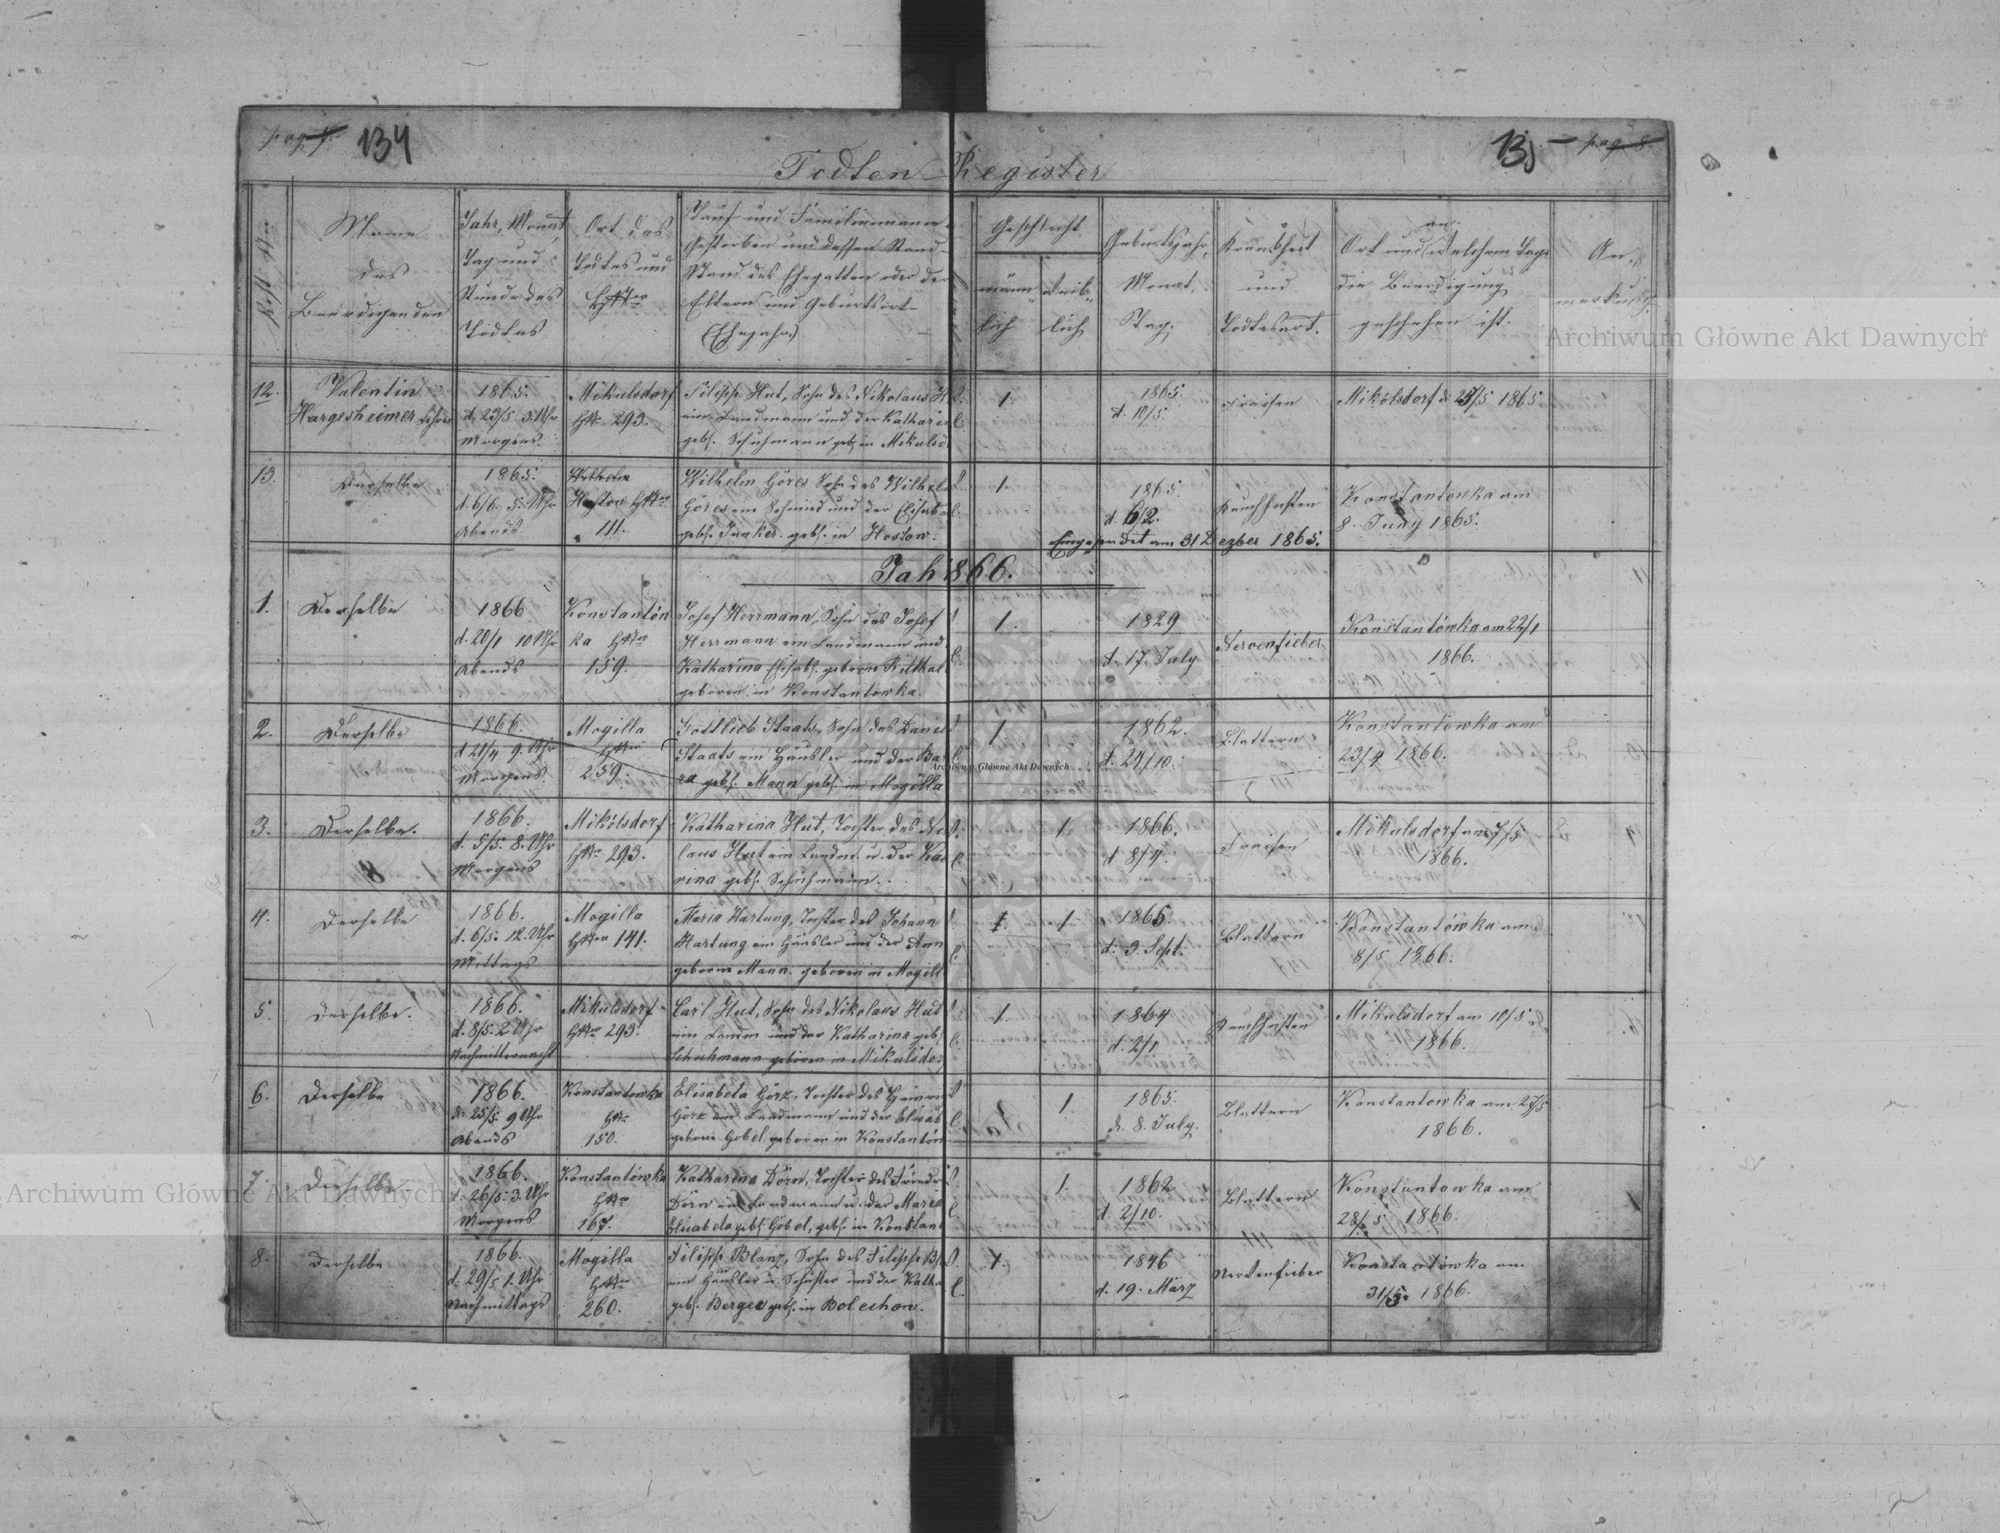 pag 7. 134
135 pag 8.
Todten-Register
Post Nro
Name
des
Beerdigenden
Jahr, Monat,
Tag und
Stunde des
Todtes
Ort des
Todtes und
HsNro
Tauf- und Familienname
Gestorben und dessen Stand-
Stand des Ehegatten oder der
Eltern und Geburtsort-
(Ehejahre)
Geschlecht
männ-
lich
weib-
lich
Geburtsjahr,
Monat,
Tag.
Krankheit
und
Todtesart.
an
Ort und welchem Tage
die Beerdigung
geschehen ist.
An-
merkung.
12.
Valentin
Hargesheimer Lehrer
1865.
d. 23/5 3 Uhr
Morgens.
Mikulsdorf
HsNr 293.
Filipp Hut, Sohn des Nikolaus H
ein Landmann und der Kathari
geb. Schuhmann geb. in Mikulsd
1.
1865
d. 10/5.
Fraisen
Mikólsdorf d. 25/5 1865
13.
Derselbe
1865.
d. 6/6. 5. Uhr
Abends
Hoston HsNro
111.
Wilhelm Göres Sohn des Wilhel
Göres ein Schmied und der Elisab
geb. Junker. geb. in Hoston.
1.
1865.
d. 6/2.
Keuchhusten
Konstantowka am
8. Juny 1865.
Eingesendet am 31 Dezber 1865.
Jahr 1866.
1.
Derselbe
1866
d. 20/1 10 Uhr
Abends
Konstantów
ka HsNro
159.
Josef Herrmann, Sohn des Josef
Herrmann ein Landmann und
Katharina Elisab. geborne Rüthal
geboren in Konstantowka.
1.
1829
d. 17. July
Nervenfieber
Konstantówka am 22/1
1866.
2.
Derselbe
1866.
d 21/4 9. Uhr
Morgens
Mogilla
HsNro
259.
Gottlieb Staats, Sohn des Daniel
Staats ein Häusler und der Bar
ra geb. Mann geb. in Mogilla
1.
1862.
d. 27/10.
Blattern
Konstantówka am
23/4 1866.
3.
Derselbe.
1866.
d. 5/5. 8. Uhr
Morgens
Mikólsdorf
HsNro 293.
Katharina Hut, Tochter des Ni
laus Hut ein Landm. u. der Ka
rina geb. Schuhmann.
1.
1866.
d 8/4.
Fraisen
Mikulsdorf am 7/5
1866.
4.
Derselbe
1866.
d. 6/5. 12. Uhr
Mittags
Mogilla
HsNro 141.
Maria Hartung, Tochter des Johann
Hartung ein Häusler und der Ann
geborne Mann. geboren in Mogill
1
1865.
d. 3. Sept.
Blattern
Konstantówka am
8/5 1866.
5.
Derselbe.
1866.
d. 8/5. 2 Uhr
Nachmitternacht
Mikulsdorf
HsNro 293.
Carl Hut, Sohn des Nikolaus Hut
ein Landm und der Katharina geb.
Schuhmann geboren in Mikulsdor
1.
1864
d. 2/1
Keuchhusten
Mikulsdorf am 10/5.
1866.
6.
Derselbe
1866.
d. 25/5. 9 Uhr
Abends
Konstantowka
HsNr
150.
Elisabeta Görz, Tochter des Heinrich
Görz ein Landmann und der Elisab
geborne Gobel geboren in Konstantów
1.
1865.
d. 8. July.
Blattern
Konstantowka am 27/5
1866.
7.
Derselbe
1866.
d. 26/5. 3. Uhr
Morgens
Konstantówka
HsNro
167.
Katharina Dörn, Tochter des Friedr
Dörn ein Landmann u. der Maria
Elisabeta geb. Göbel, geb. in Konstant
1.
1862
d. 2/10.
Blattern
Konstantowka am
28/5 1866.
8.
Derselbe
1866.
d. 29/5 1. Uhr
Nachmittags
Mogilla
HsNro
260.
Filipp Blanz, Sohn des Filipp Bl
ein Häusler u. Schuster und der Katha
geb. Berger geb. in Bolechow.
1.
1846
d. 19. März
Nervenfieber
Konstantówka am
31/5. 1866.
Archiwum Główne Akt Dawnych
Archiwum Główne Akt Dawnych
Archiwum Główne Akt Dawnych